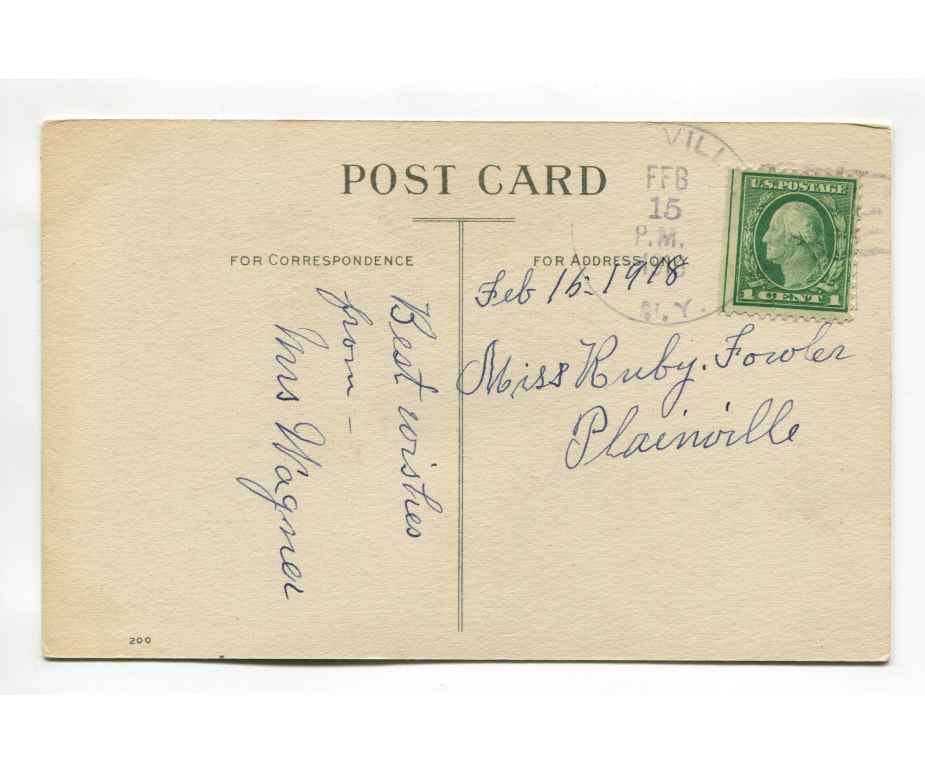 POST CARD
FOR CORRESPONDENCE
FOR ADDRESS ONLY
VILL
FEB
15
P.M.
N.Y.
U.S. POSTAGE
1 CENT 1
Feb 15 1918
Miss Ruby. Fowler
Plainville
Best wishes
from –
Mrs Wagner
200